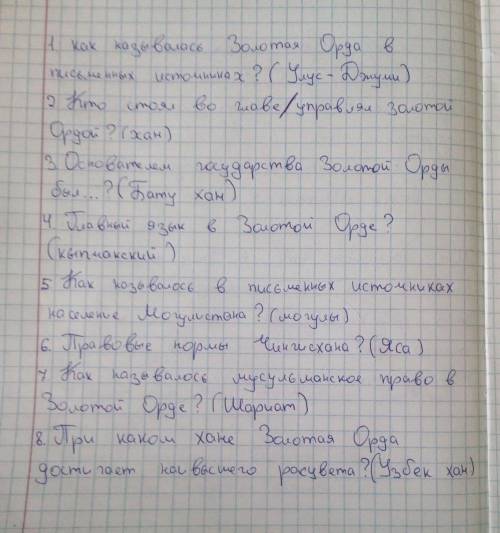 1. как называлась Золотая Орда в
письменных источниках? (Улус-Джучи)
2. Кто стоял во главе/управлял золотой
Ордой? (хан)
3. Основателем государства Золотой Орды
был...? (Бату хан)
4. Главный язык в Золотой Орде?
(кыпчакский)
5. Как называлось в письменных источниках
население Могулистана? (могулы)
6. Правовые нормы Чингисхана? (Яса)
7. Как называлось мусульманское право в
Золотой Орде? (Шариат)
8. При каком хане Золотая Орда
достигает наивысшего расцвета? (Узбек хан)